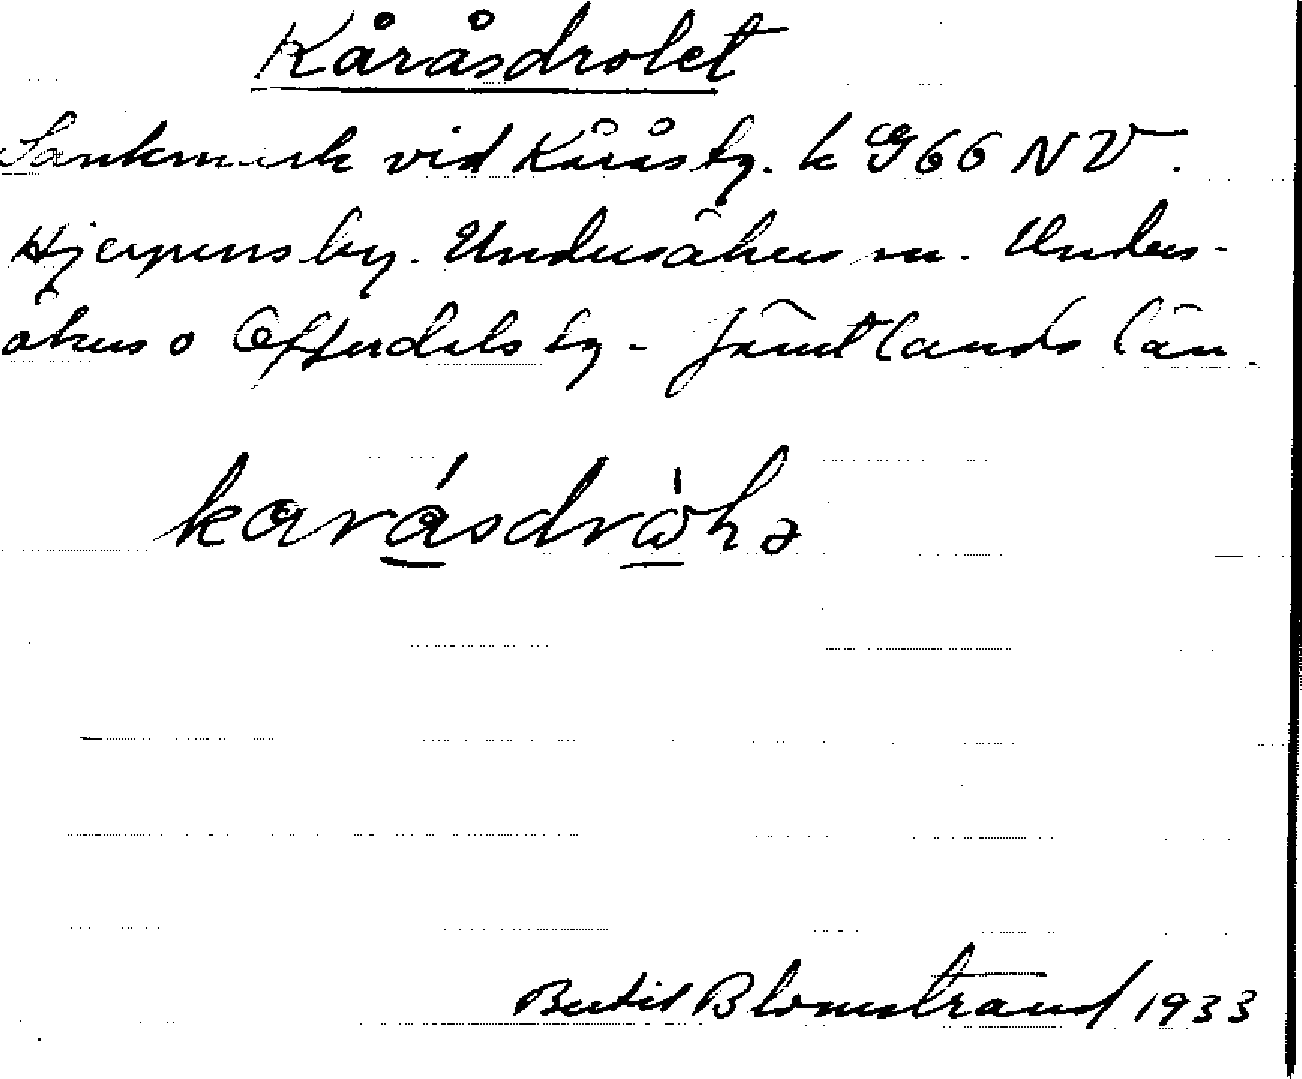 Kåråsdrolet
Sankmark vid Kåråsby. k G66 NV.
Hjerpens by. Undersåkers sn. Unders-
åkers o Offerdals by - Jämtlands län.
karásdròhə
Bertil Blomstrand 1933